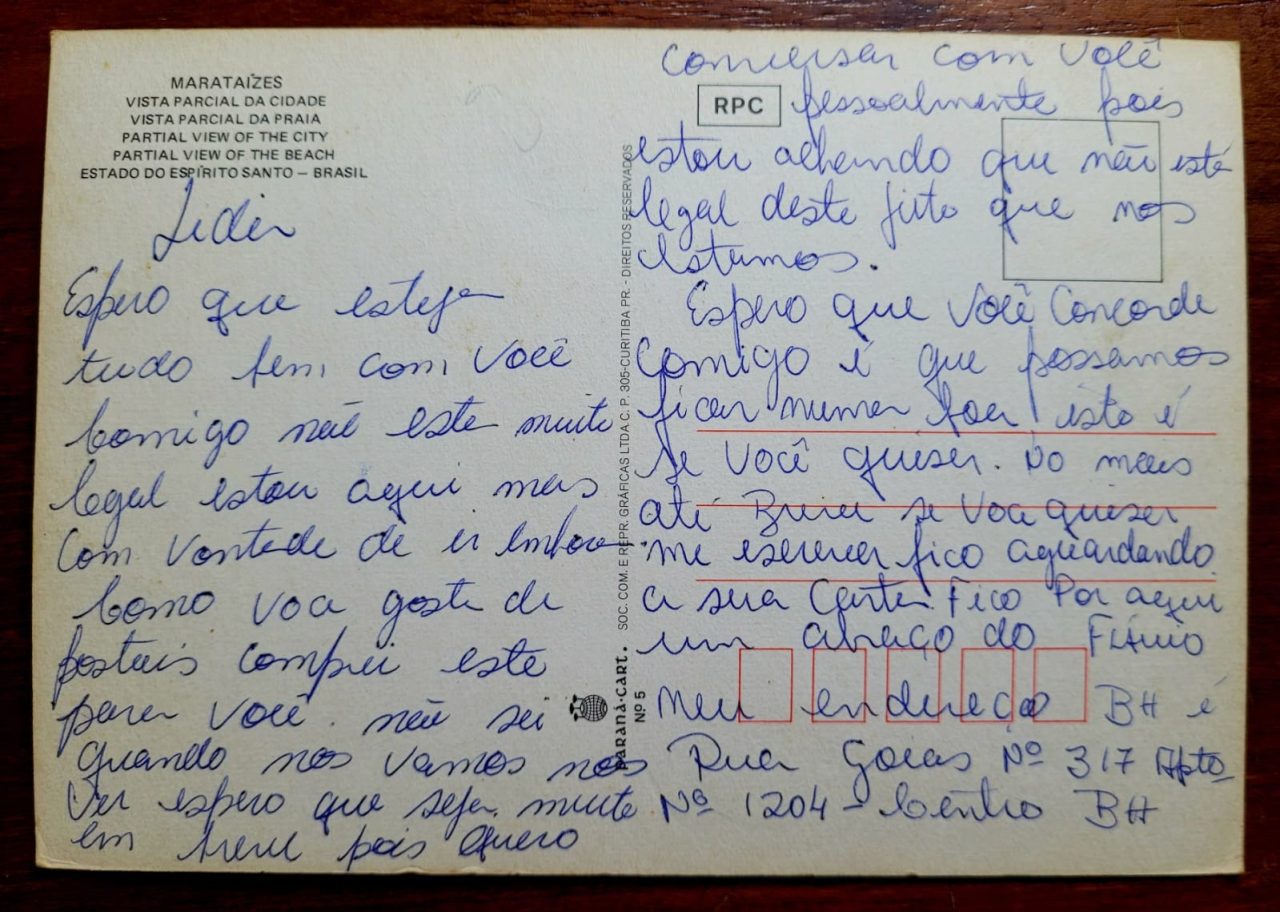 MARATAÍZES
VISTA PARCIAL DA CIDADE
VISTA PARCIAL DA PRAIA
PARTIAL VIEW OF THE CITY
PARTIAL VIEW OF THE BEACH
ESTADO DO ESPÍRITO SANTO – BRASIL
Espero que esteja
tudo bem com você
Comigo não este muito
legal estou aqui mas
com vontade de ir embora
Como voce gosta de
postais comprei este
para você. não sei
quando nos vamos nos
ver espero que seja muito
em breve pois quero
PARANÁ-CART.
Nº 5
SOC. COM. E REPR. GRÁFICAS LTDA C. P. 305-CURITIBA PR. - DIREITOS RESERVADOS
RPC
Conversar com você
pessoalmente pois
estou achando que não está
legal deste jeito que nos
estamos.
Espero que você Concorde
Comigo é que possamos
ficar numa boa isto é
se você quiser. No mais
até Breve se voce quiser
me escrever fico aguardando
a sua Carta. Fico Por aqui
um abraço do FLÁVIO
Meu endereço BH é
Rua Goias Nº 317 Apto
Nº 1204 - Centro BH